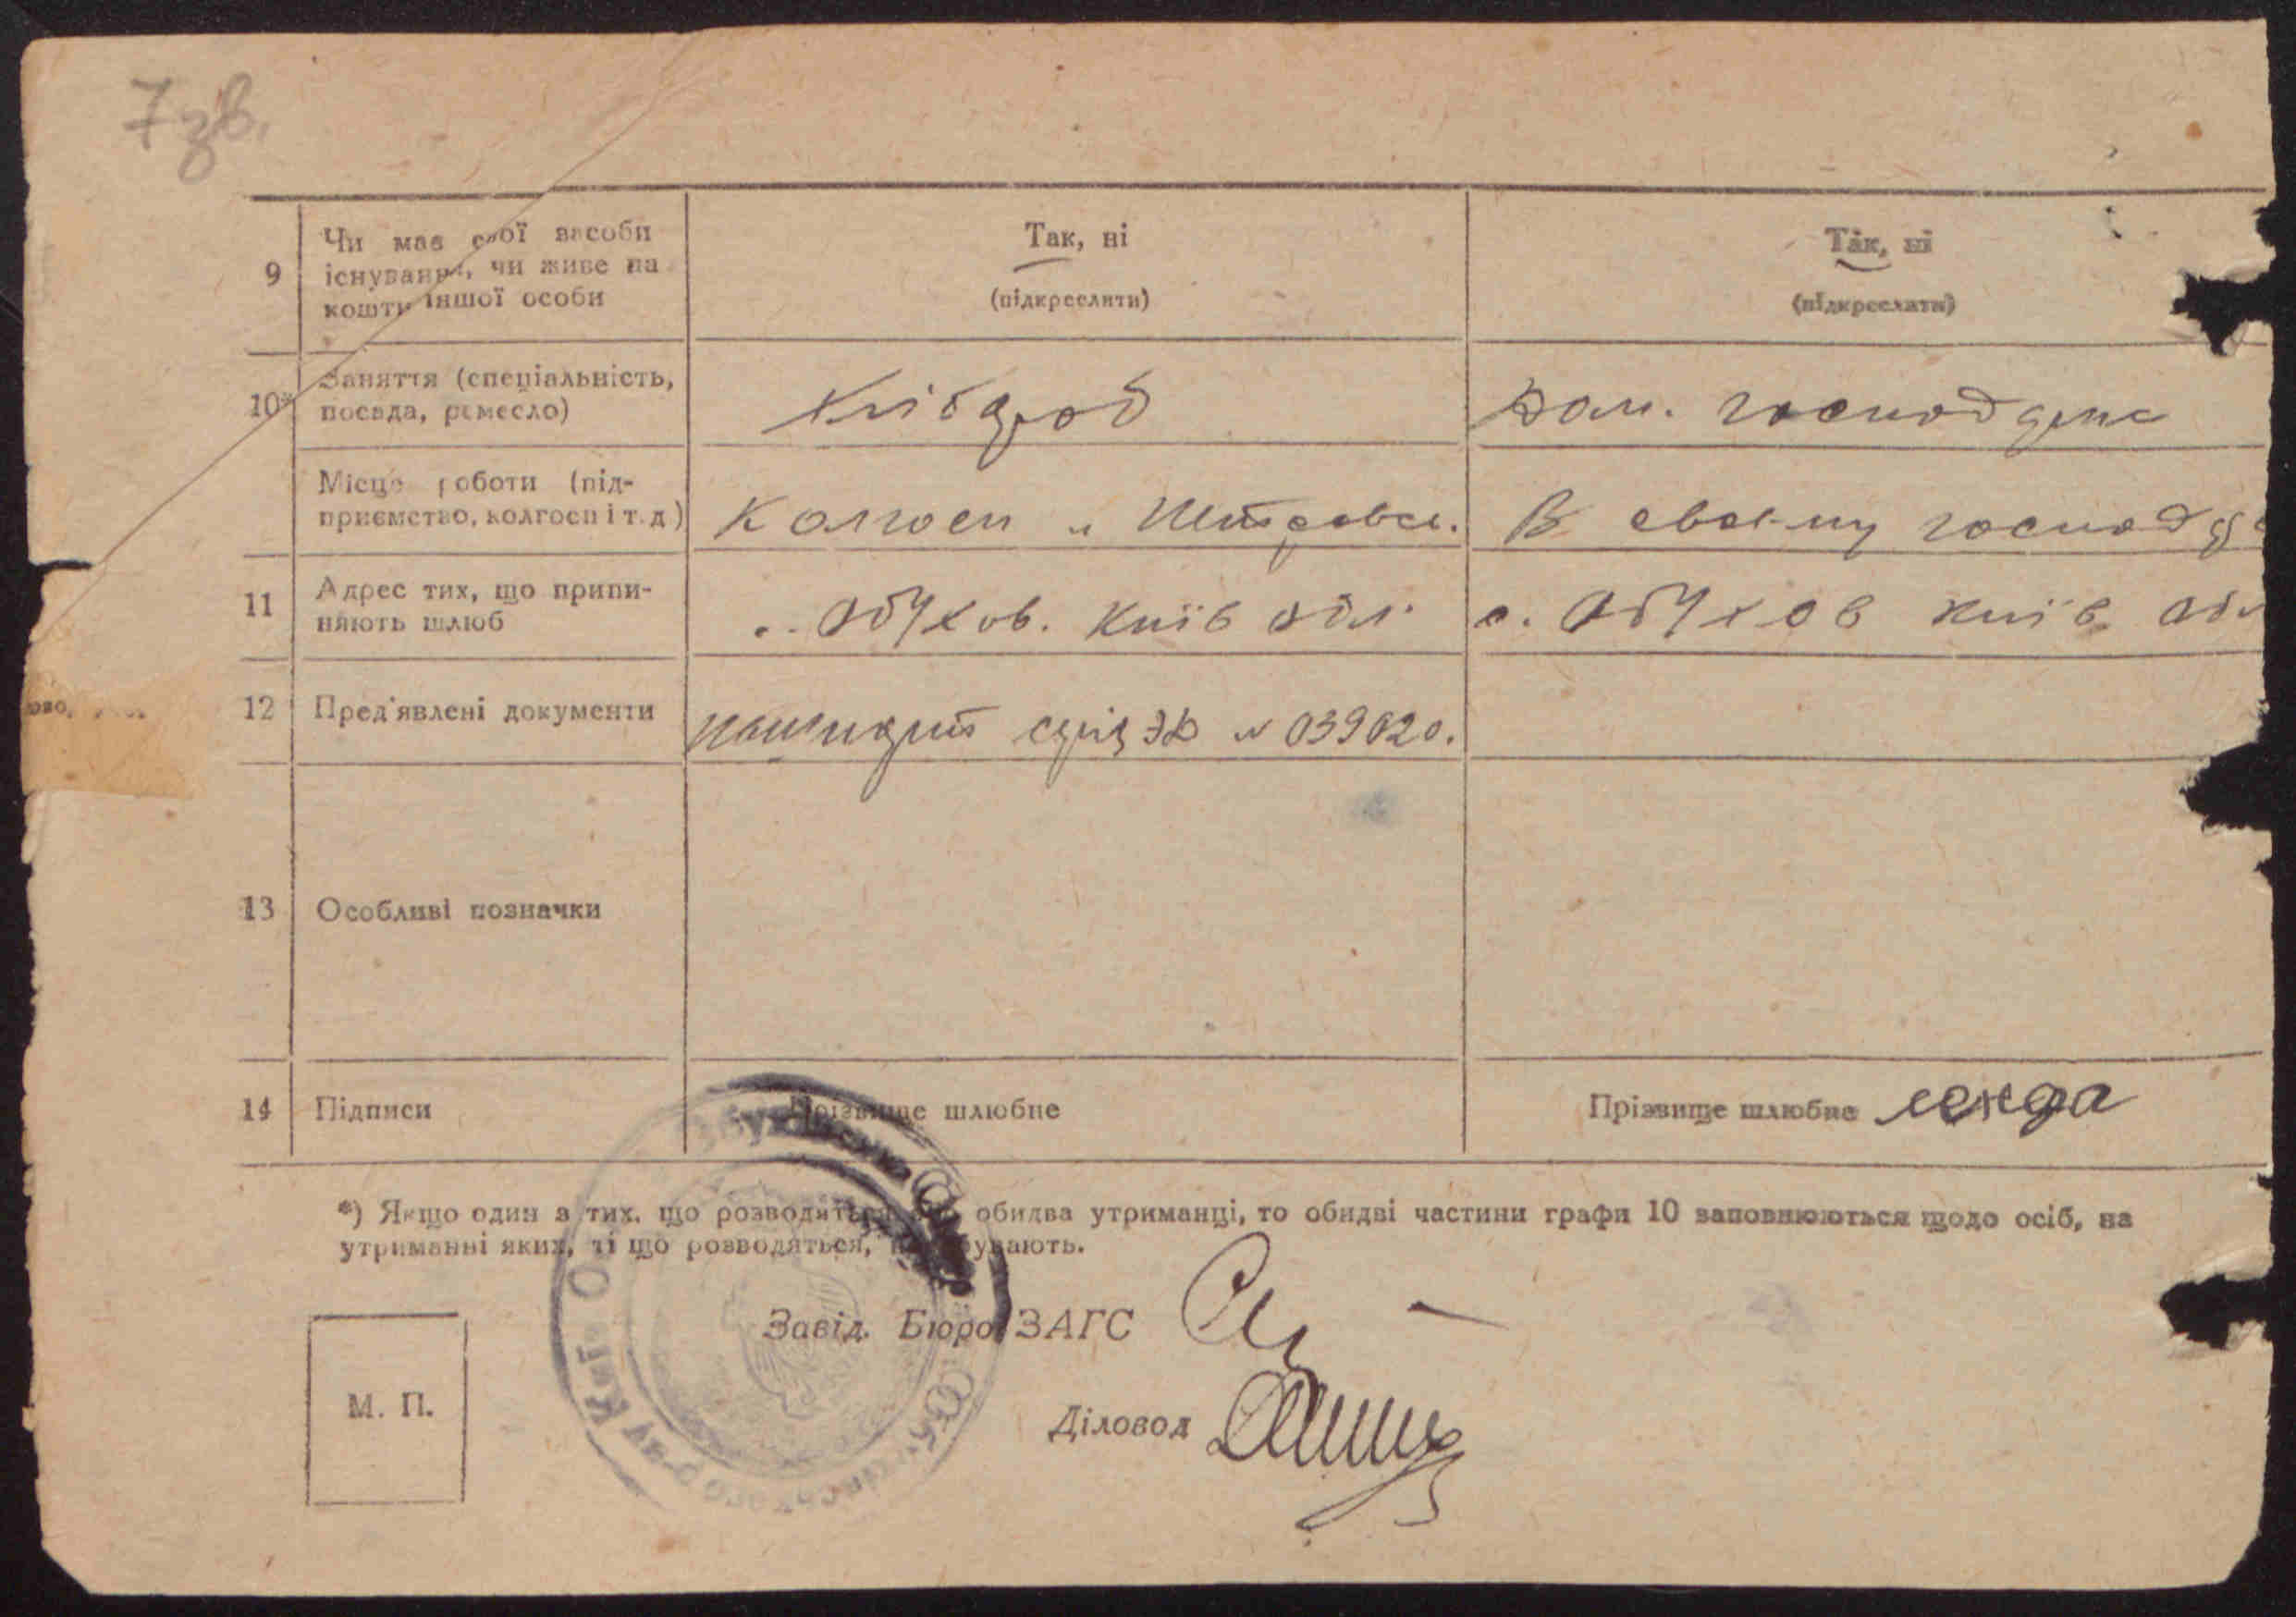 7 зв.
9 Чи має свої засоби існування, чи живе на кошти іншої особи
Так, ні
(підкреслити)
Так, ні
(підкреслити)
10* Заняття (спеціальність, посада, ремесло)
Хлібороб
Дом. господарка
Місце роботи (підприємство, колгосп і т. д)
Колгосп „Петровск.
В своєму господар
11 Адрес тих, що припиняють шлюб
с. Обухов. Київ обл.
с. Обухов Київ обл
12 Пред'явлені документи
пашпорт серія ЭД № 039020.
13 Особливі позначки
14 Підписи
Прізвище шлюбне
Прізвище шлюбне
*) Якщо один з тих, що розводяться, або обидва утриманці, то обидві частини графи 10 заповнюються щодо осіб, на
утриманні яких, ті що розводяться, перебувають.
Завід. Бюро ЗАГС
М. П.
Діловод